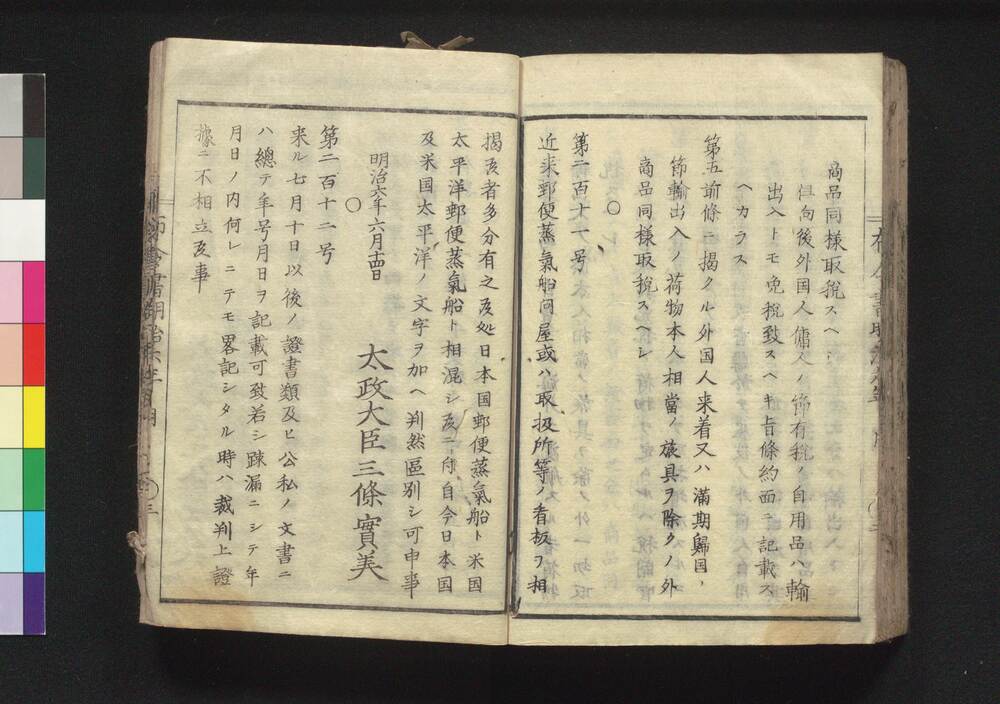 商品同様取税スヘ
但向後外国人傭入ノ節有税ノ自用品ハ輸
出入トモ免税致スヘキ旨條約面ニ記載ス
ヘカラス
第五前條ニ掲クル外国人来着又ハ満期歸国ノ
節輸出入ノ荷物本人相當ノ旅具ヲ除クノ外
商品同様取税スヘシ
○
第二百十一号
近来郵便蒸氣船问屋或ハ取扱所等ノ看板ヲ相
揭候者多分有之候処日本国郵便蒸氣船ト米国
太平洋郵便蒸氣船ト相混シ候ニ付自今日本国
及米国太平洋ノ文字ヲ加ヘ判然區别シ可申事
明治六年六月十四日
太政大臣三條實美
○
第二百十二号
来ル七月十日以後ノ證書類及ヒ公私ノ文書ニ
ハ總テ年号月日ヲ記載可致若シ疎漏ニシテ年
月日ノ内何レニテモ畧記シタル時ハ裁判上證
據ニ不相立候事